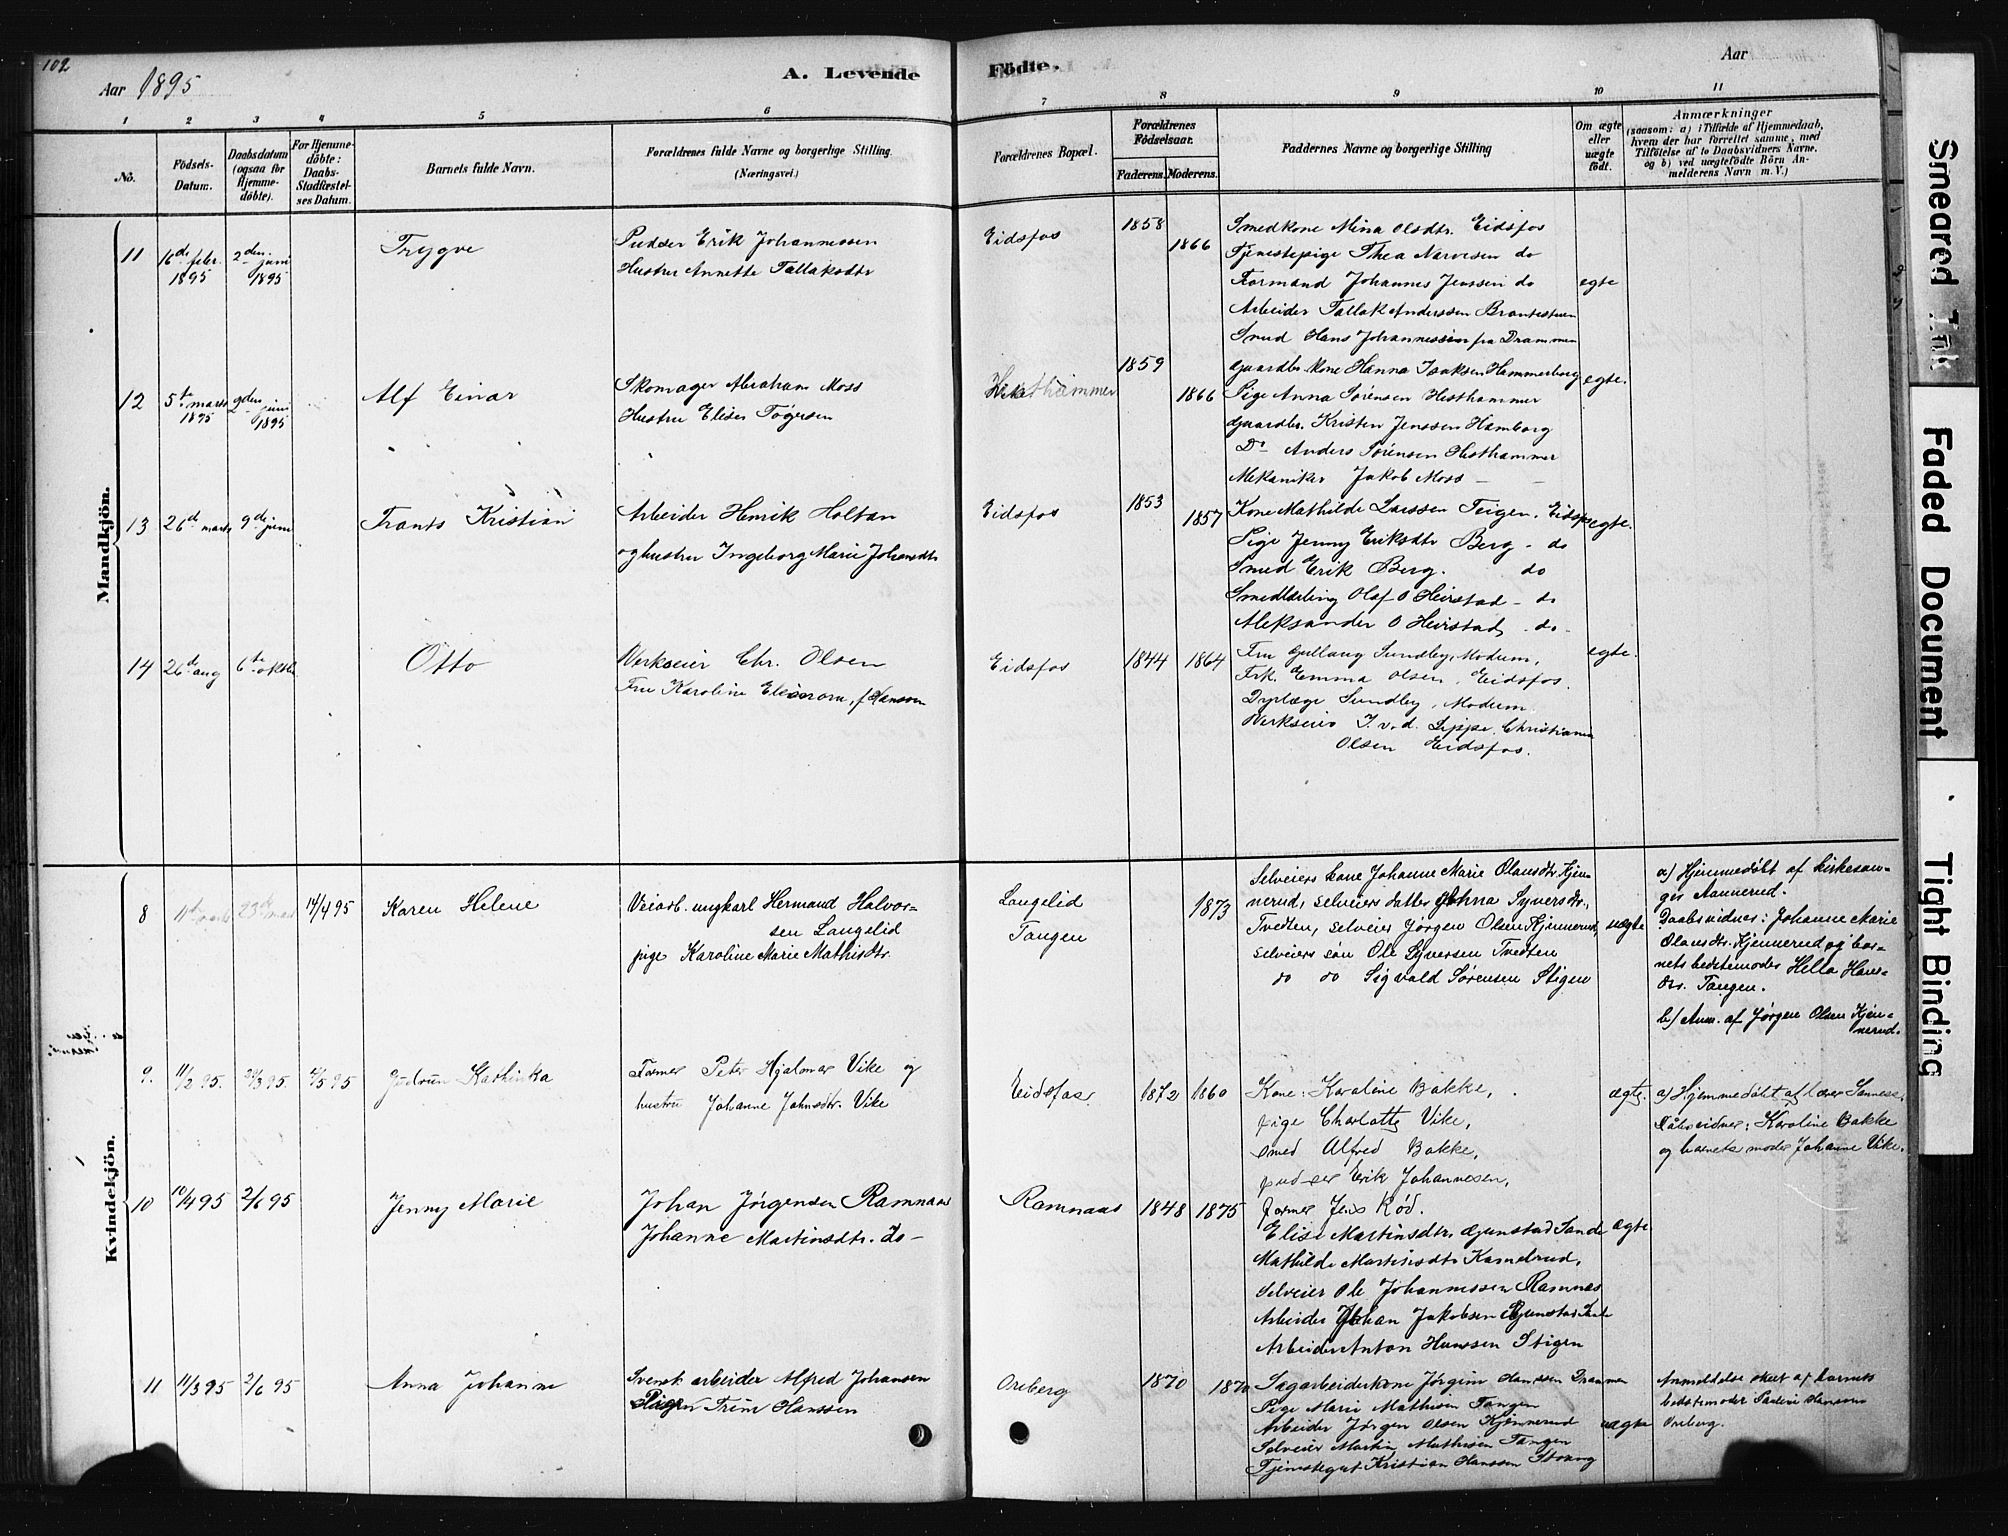 102
Aar 1895
A. Levende
Födte.
Aar
1 2 3 4 5 6 7 8 9 10 11
No.
Födsels-Datum.
Daabsdatum (ogsaa for Hjemme-döbte).
For Hjemme-döbte: Daabs-Stadfæstel-ses Datum.
Barnets fulde Navn.
Forældrenes fulde Navne og borgerlige Stilling.
(Næringsvei.)
Forældrenes Bopæl.
Forældrenes Fødselsaar.
Faderens. Moderens.
Faddernes Navne og borgerlige Stilling
Om ægte eller uægte født.
Anmærkninger
(saasom: a) i Tilfælde af Hjemmedaab,
hvem der har forrettet samme, med
Tilföielse af to Daabsvidners Navne,
og b) ved uægtefödte Börn An-
melderens Navn m. V.)
Mandkjön.
11 16de febr. 1895 2den juni 1895
Trygve
Pudser Erik Johannessen
Hustru Annette Tallaksdtr
Eidsfos
1858
1866
Smedkone Mina Olsdtr. Eidsfos
Tjenestepige Thea Narvesen do
Formand Johannes Jenssen do
Arbeider Tallak Anderssen Brantestuen
Smed Hans Johannessen fra Drammen
egte
12 5te marts 1895 9den juni 1895
Alf Einar
Skomager Abraham Moss
Hustru Elise Tögersen
Hesthammer
1859
1866
Gaardbr. kone Hanna Isaksen Hammerborg
Pige Anna Sörensen Hesthammer
Gaardbr. Kristen Jenssen Hamborg
Do Anders Sörensen Hesthammer
Mekaniker Jakob Moss
egte.
13 26d marts 9de juni
Frants Kristian
Arbeider Henrik Holtan
og hustru Ingeborg Marie Johansdtr
Eidsfos
1853
1857
Kone Mathilde Larssen Teigen. Eidsfos
Pige Jenny Eriksdtr Berg - do
Smed Erik Berg. do
Smedlærling Olaf O Heirstad - do
Aleksander O Heirstad - do.
egte.
14 26d aug 6te oktbr
Otto
Verkseier Chr. Olsen
Fru Karoline, f. Hansen
Eidsfos
1844
1864
Fru Gullaug Sundby, Modum,
Frk. Emma Olsen, Eidsfos.
Dyrlæge Sundby, Modum.
Verkseier J. v. d. Lippe, Christiania
Olsen Eidsfos.
egte.
Kvindekjön.
8 14/4 95
Karen Helene
Veiarb. ungkarl Hermand Halvor-
sen Langelid
pige Karoline Marie Mathisdtr.
Langelid
Tangen
1873
Selveiers kone Johanne Marie Olausdtr. Kjen-
nerud, selveiers datter Johna Syversdtr.,
Tvedten, selveier Jørgen Olsen Kjennerud,
selveiers søn Ole Syversen Tvedten
do do Sigvald Sørensen Stigen
uægte
a) Hjemmedöbt af kirkesan-
ger Aannerud.
Daabsvidner: Johanne Marie
Olausdtr. Kjennerud og bar-
nets bedstemoder Hella Hans-
dtr. Tangen.
b) Anm. af Jørgen Olsen Kjen-
nerud.
9. 11/2 95. 5 95
Gudrun Kathinka
Former Peter Hjalmar Vike og
hustru Johanne Johnsdtr. Vike
Eidsfos
1872 1860
Kone: Karoline Bakke,
pige Charlotte Vike,
smed Alfred Bakke,
pudser Erik Johannesen,
former Jens Kød.
ægte.
a) Hjemmedöbt af lærer Sanness,
Dåbsvidner: Karoline Bakke
og barnets moder Johanne Vike.
10 10/4 95 2/6 95
Jenny Marie
Johan Jørgensen Ramnaas
Johanne Martinsdtr. do -
Ramnaas
1848 1875
Elise Martinsdtr. Gjunstad Sande
Mathilde Martinsdtr Kamelrud,
Selveier Ole Johannessen Ramnes
Arbeider Johan Jakobsen Gjunstad Sande
Arbeider Anton Hanssen Stigen
ægte
11 11/3 95 2/6 95
Anna Johanne
Svensk arbeider Alfred Johansen
Pigen Trine Hanssen
Oreberg
1870
1870
Sagarbeiderkone Jørgine Hanssen Drammen
Pige Marie Mathisen Tangen
Arbeider Jørgen Olsen Kjennerud
Selveier Martin Mathisen Tangen
Tjenestegut Kristian Hanssen Strang
uægte
Anmeldelse skeet af barnets
bedstemoder Pauline Hanssen
Oreberg.
Smeared Ink
Faded Document
Tight Binding